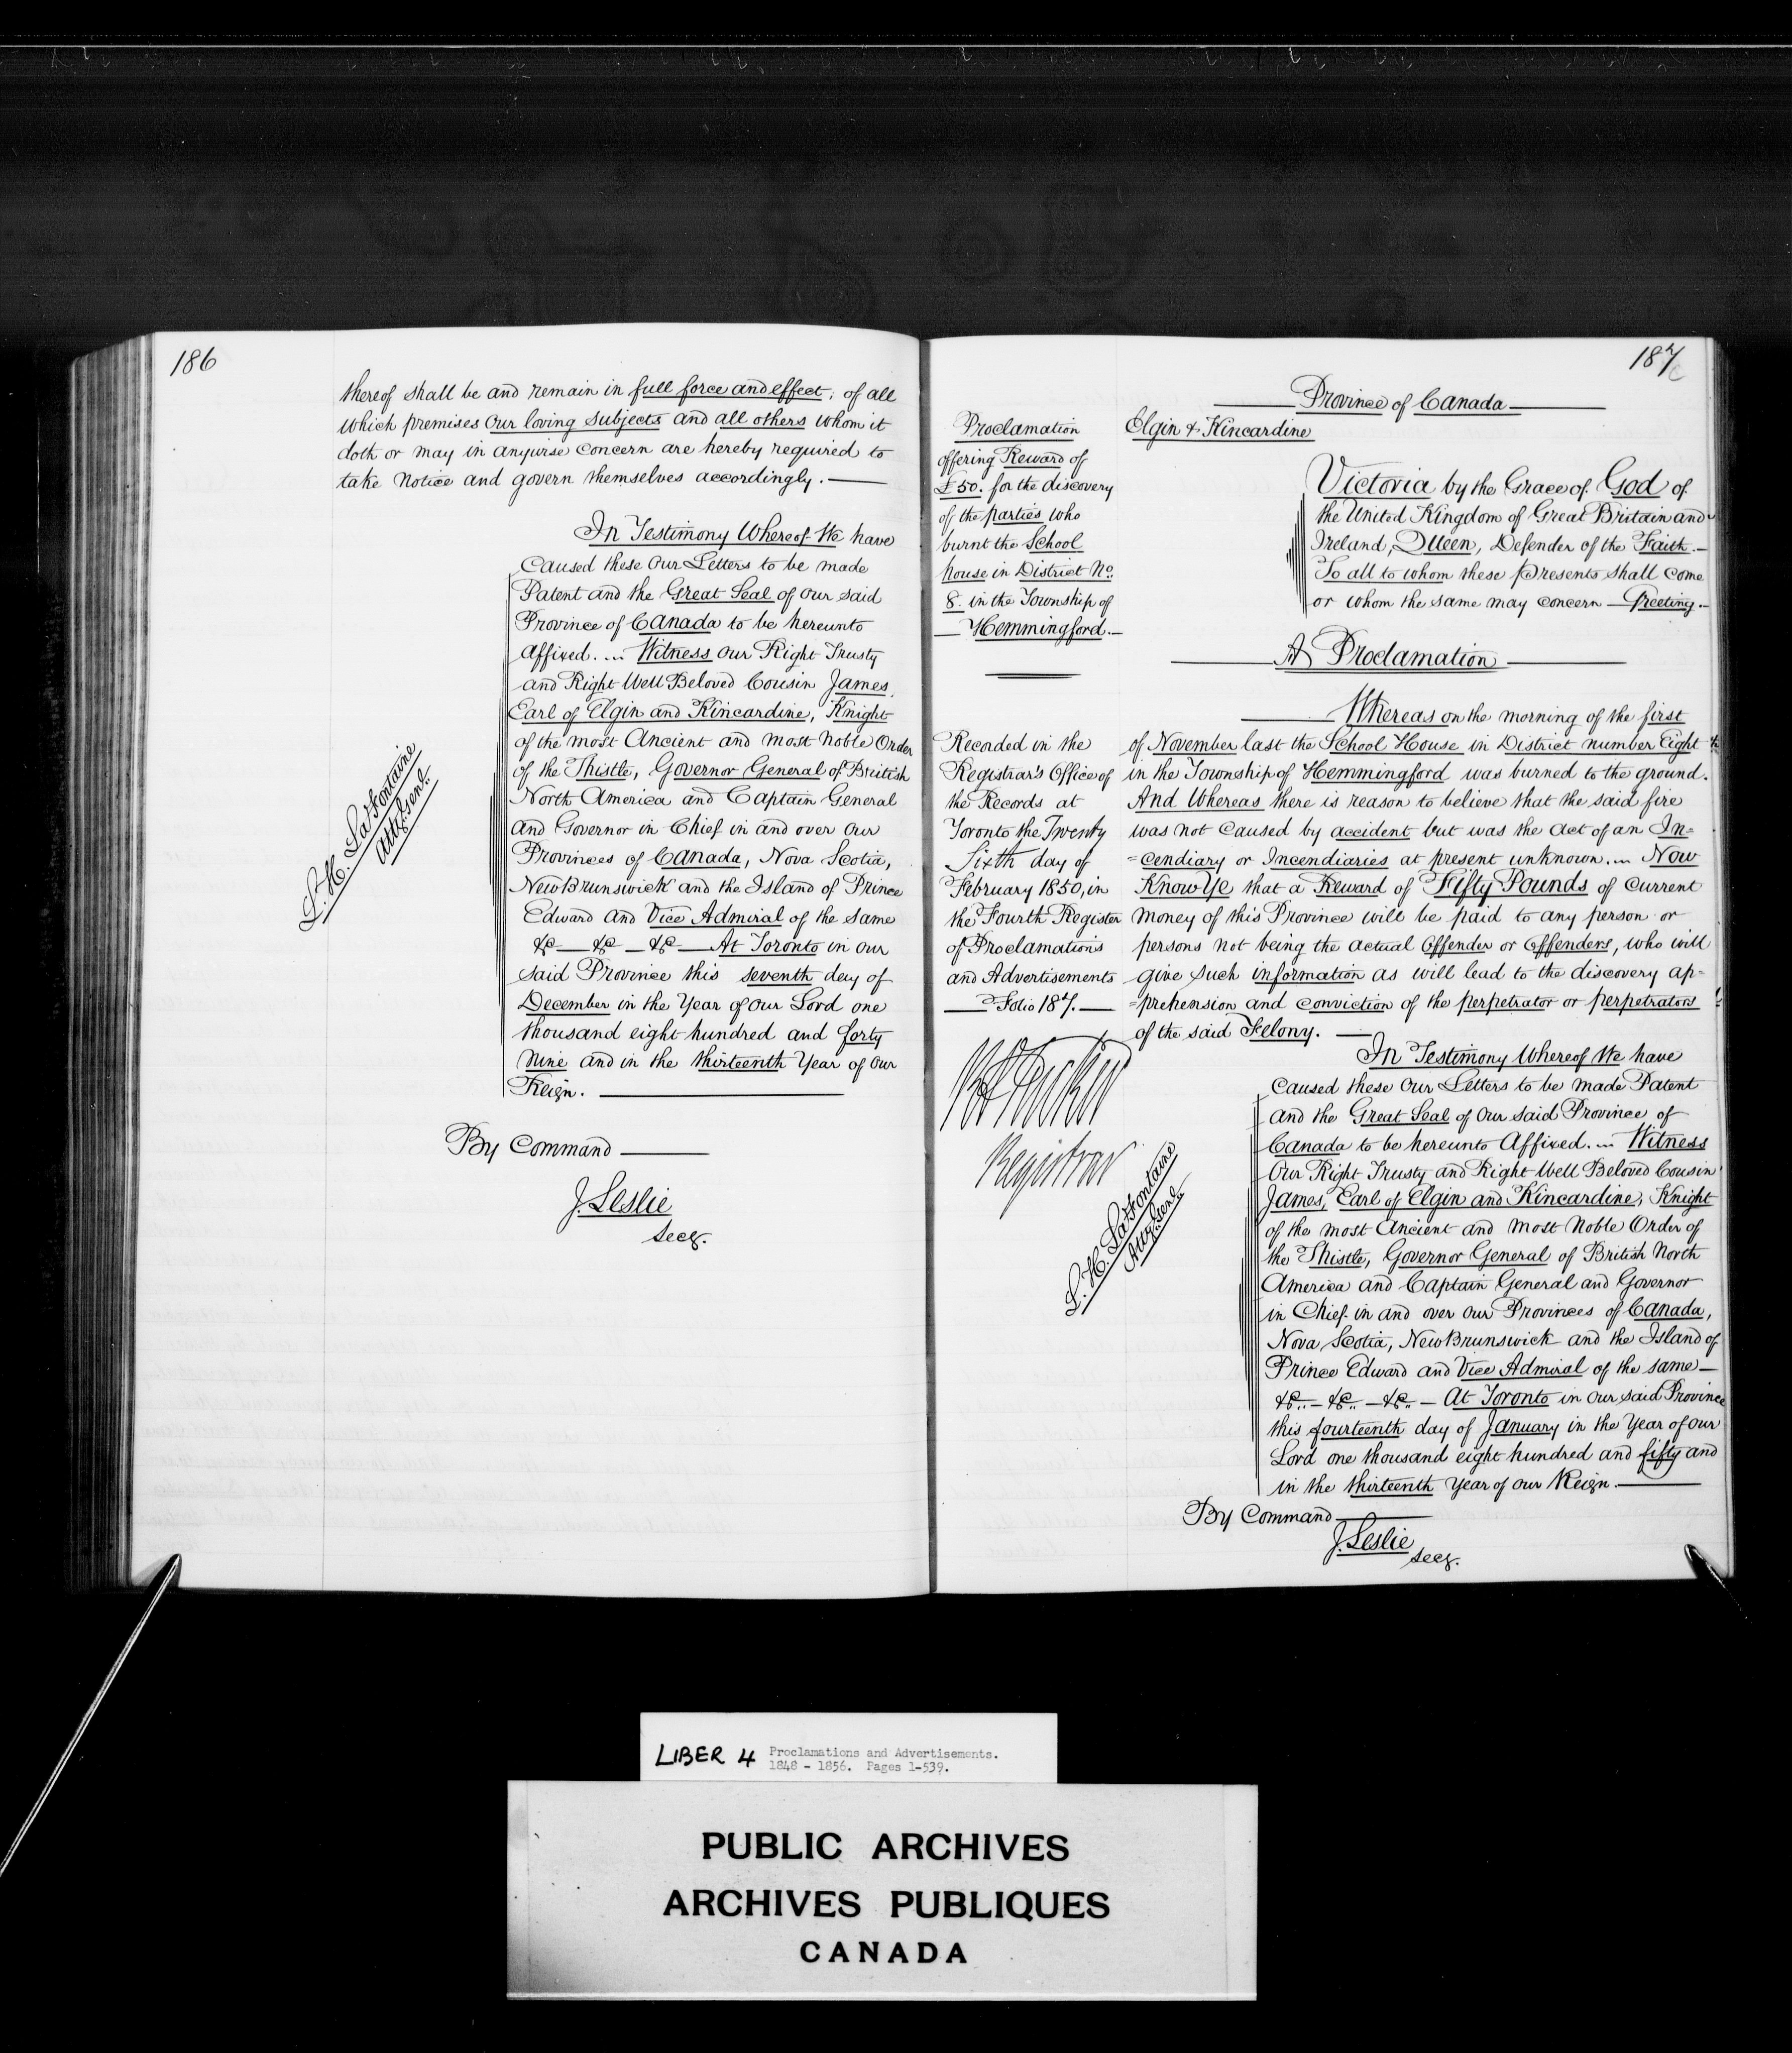 186
thereof shall be and remain in full force and effect; of all
which premises Our loving subjects and all others whom it
doth or may in anywise concern are hereby required to
take Notice and govern themselves accordingly. —
In Testimony Whereof We have
Caused these Our Letters to be made
Patent and the Great Seal of our said
Province of Canada to be hereunto
Affixed. ... Witness our Right Trusty
and Right Well Beloved Cousin James,
Earl of Elgin and Kincardine, Knight
of the most Ancient and most Noble Order
of the Thistle, Governor General of British
North America and Captain General
and Governor in Chief in and over our
Provinces of Canada, Nova Scotia,
New Brunswick and the Island of Prince
Edward and Vice Admiral of the same
&c — &c — &c — At Toronto in our
said Province this seventh day of
December in the Year of Our Lord one
thousand eight hundred and forty
Nine and in the thirteenth Year of Our
Reign. —
L. H. LaFontaine
Atty. Genl.
By Command —
J. Leslie
Secy.
187
Province of Canada
Proclamation
offering Reward of
£50. for the discovery
of the parties who
burnt the School
house in District No.
8. in the Township of
— Hemmingford. —
Recorded in the
Registrar's Office of
the Records at
Toronto the Twenty
Sixth day of
February 1850, in
the Fourth Register
of Proclamations
and Advertisements
— Folio 187. —
Registrar
L. H. LaFontaine
Atty. Genl.
Elgin & Kincardine
Victoria by the Grace of God of
the United Kingdom of Great Britain and
Ireland, Queen, Defender of the Faith. —
To all to whom these Presents shall come
or whom the same may concern — Greeting. —
A Proclamation
Whereas on the morning of the first
of November last the School House in District number Eight
in the Township of Hemmingford was burned to the ground.
And Whereas there is reason to believe that the said fire
was not caused by accident but was the act of an In=
=cendiary or Incendiaries at present unknown. ... Now
Know Ye that a Reward of Fifty Pounds of Current
Money of this Province will be paid to any person or
persons not being the actual Offender or Offenders, who will
give such information as will lead to the discovery ap=
=prehension and conviction of the perpetrator or perpetrators
of the said Felony. —
In Testimony Whereof We have
caused these Our Letters to be made Patent
and the Great Seal of Our said Province of
Canada to be hereunto Affixed. ... Witness
Our Right Trusty and Right Well Beloved Cousin
James, Earl of Elgin and Kincardine, Knight
of the most Ancient and most Noble Order of
the Thistle, Governor General of British North
America and Captain General and Governor
in Chief in and over our Provinces of Canada,
Nova Scotia, New Brunswick and the Island of
Prince Edward and Vice Admiral of the same —
&c.. — &c.. — &c.. — At Toronto in our said Province
this fourteenth day of January in the Year of our
Lord one thousand eight hundred and fifty and
in the thirteenth Year of our Reign. —
By Command —
J. Leslie
Secy.
LIBER 4 Proclamations and Advertisements.
1848 - 1856. Pages 1-539.
PUBLIC ARCHIVES
ARCHIVES PUBLIQUES
CANADA